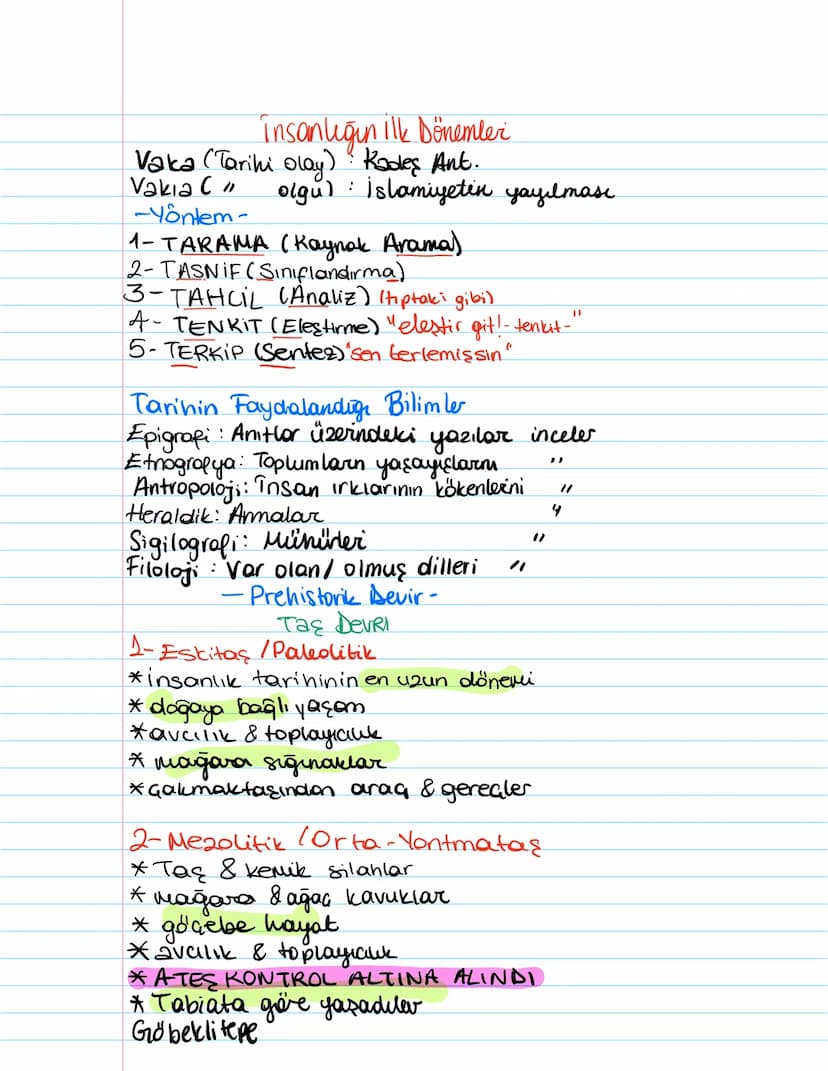 İnsanlığın İlk Dönemleri
Vaka (Tarihi olay) : Kadeş Ant.
Vakıa ( " olgu) : İslamiyetin yayılması
-Yöntem-
1- TARAMA (Kaynak Arama)
2- TASNİF (Sınıflandırma)
3- TAHLİL (Analiz) (tıptaki gibi)
4- TENKİT (Eleştirme) "eleştir git!- tenkit-"
5- TERKİP (Sentez) "sen terlemişsin"
Tarihin Faydalandığı Bilimler
Epigrafi : Anıtlar üzerindeki yazılar inceler
Etnografya: Toplumların yaşayışlarını "
Antropoloji: İnsan ırklarının kökenlerini "
Heraldik: Armalar "
Sigilografi: Mühürleri "
Filoloji : Var olan/ olmuş dilleri "
- Prehistorik Devir -
Taş Devri
1- Eskitaş / Paleolitik
* İnsanlık tarihinin en uzun dönemi
* doğaya bağlı yaşam
* avcılık & toplayıcılık
* mağara sığınaklar
* Çakmaktaşından araç & gereçler
2- Mezolitik / Orta - Yontmataş
* Taş & kemik silahlar
* mağara & ağaç kavuklar
* göçebe hayat
* avcılık & toplayıcılık
* ATEŞ KONTROL ALTINA ALINDI
* Tabiata göre yaşadılar
Göbeklitepe